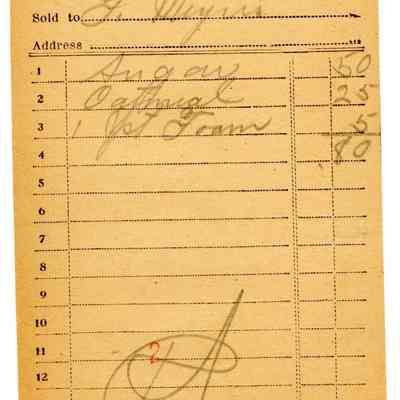 Sold to
Address
1 Sugar 50
2 Oatmeal 25
3 1 Pkt Foam 5
4 80
5
6
7
8
9
10
11 2
12